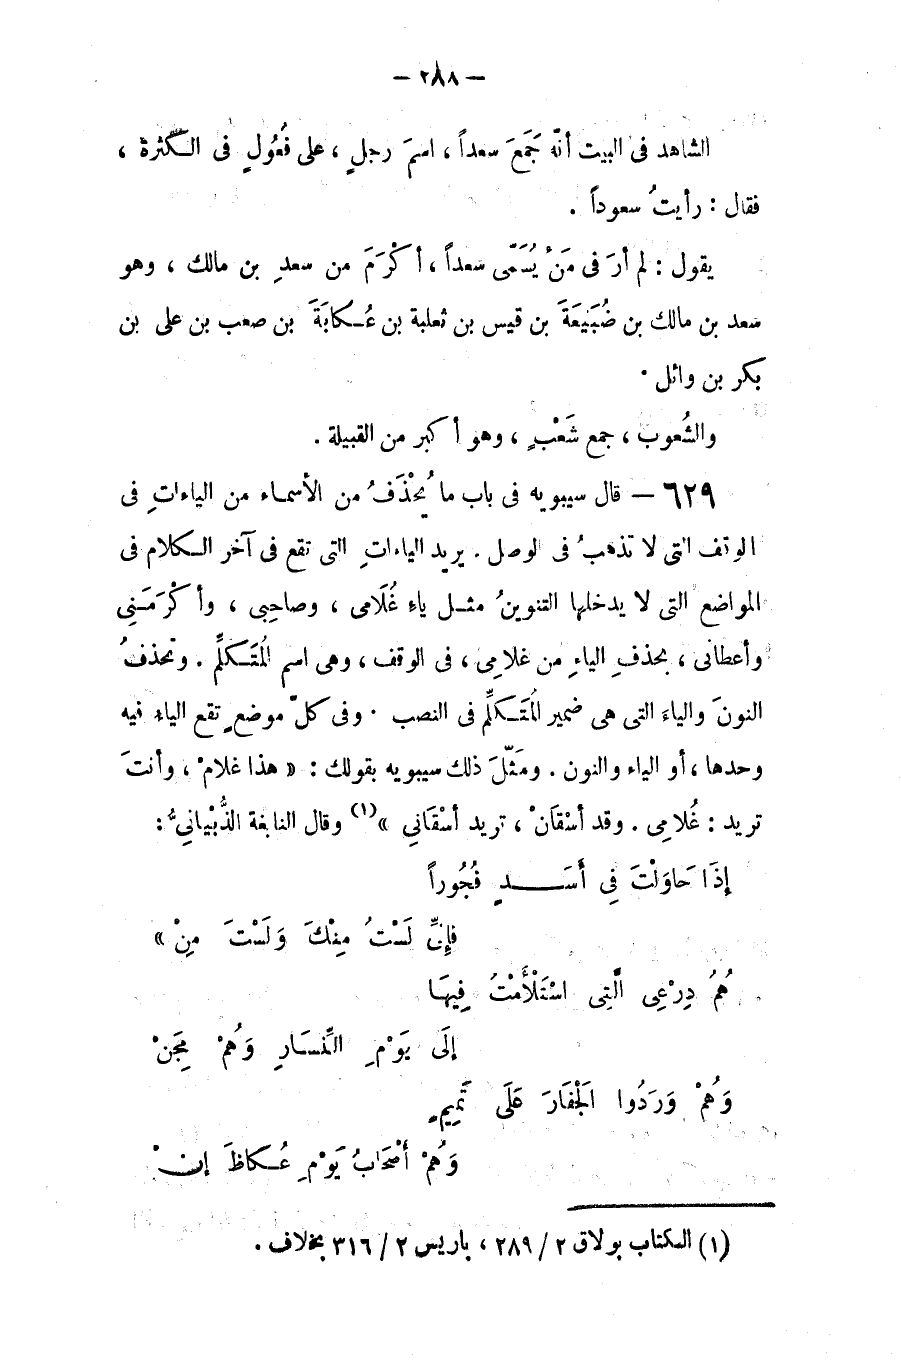 — ٢٨٨ —
الشاهد فى البيت أنّه جَمَعَ سعداً ، اسمَ رجلٍ ، على فُعُولٍ فى الكثرة ،
فقال : رأيتُ سعوداً .
يقول : لم أرَ فى مَنْ يُسَمّى سعداً ، أكْرَمَ من سعدِ بن مالك ، وهو
سعد بن مالك بن ضُبَيْعَةَ بن قيس بن ثعلبة بن عُكابَةَ بن صعب بن على بن
بكر بن وائل .
والشُعوب ، جمع شَعْبٍ ، وهو أكبر من القبيلة .
٦٢٩ — قال سيبويه فى باب ما يُحْذَفُ من الأسماء من الياءاتِ فى
الوقف التى لا تذهبُ فى الوصل . يريد الياءاتِ التى تقع فى آخر الكلام فى
المواضع التى لا يدخلها التنوينُ مثل ياءِ غُلَامى ، وصاحِبى ، وأكْرَمَنِى
وأعطانى ، بحذفِ الياءِ من غلامِى ، فى الوقف ، وهى اسم المُتَكلِّم . وتحذفُ
النونَ والياءَ التى هى ضمير المُتَكلِّم فى النصب . وفى كلّ موضعٍ تقع الياء فيه
وحدها ، أو الياء والنون . ومَثّلَ ذلك سيبويه بقولك : « هذا غلامْ ، وأنتَ
تريد : غُلامِى . وقد أسْقَانْ ، تريد أسْقَانِي »(١) وقال النابغة الذُّبْيانيُّ :
إذَا حَاوَلْتَ فِى أَسَدٍ فُجُوراً
فإِنِّى لَسْتُ مِنْكَ وَلَسْتَ مِنْ »
هُمُ دِرْعِى الَّتِى اسْتَلْأَمْتُ فِيهَا
إلَى يَوْمِ النِّسَارِ وَهُمْ مِجَنْ
وَهُمْ وَرَدُوا الجِفَارَ عَلَى تَمِيمٍ
وَهُمْ أَصْحَابُ يَوْمِ عُكاظَ إنْ
(١) الكتاب بولاق ٢ / ٢٨٩ ، باريس ٢ / ٣١٦ بخلاف .